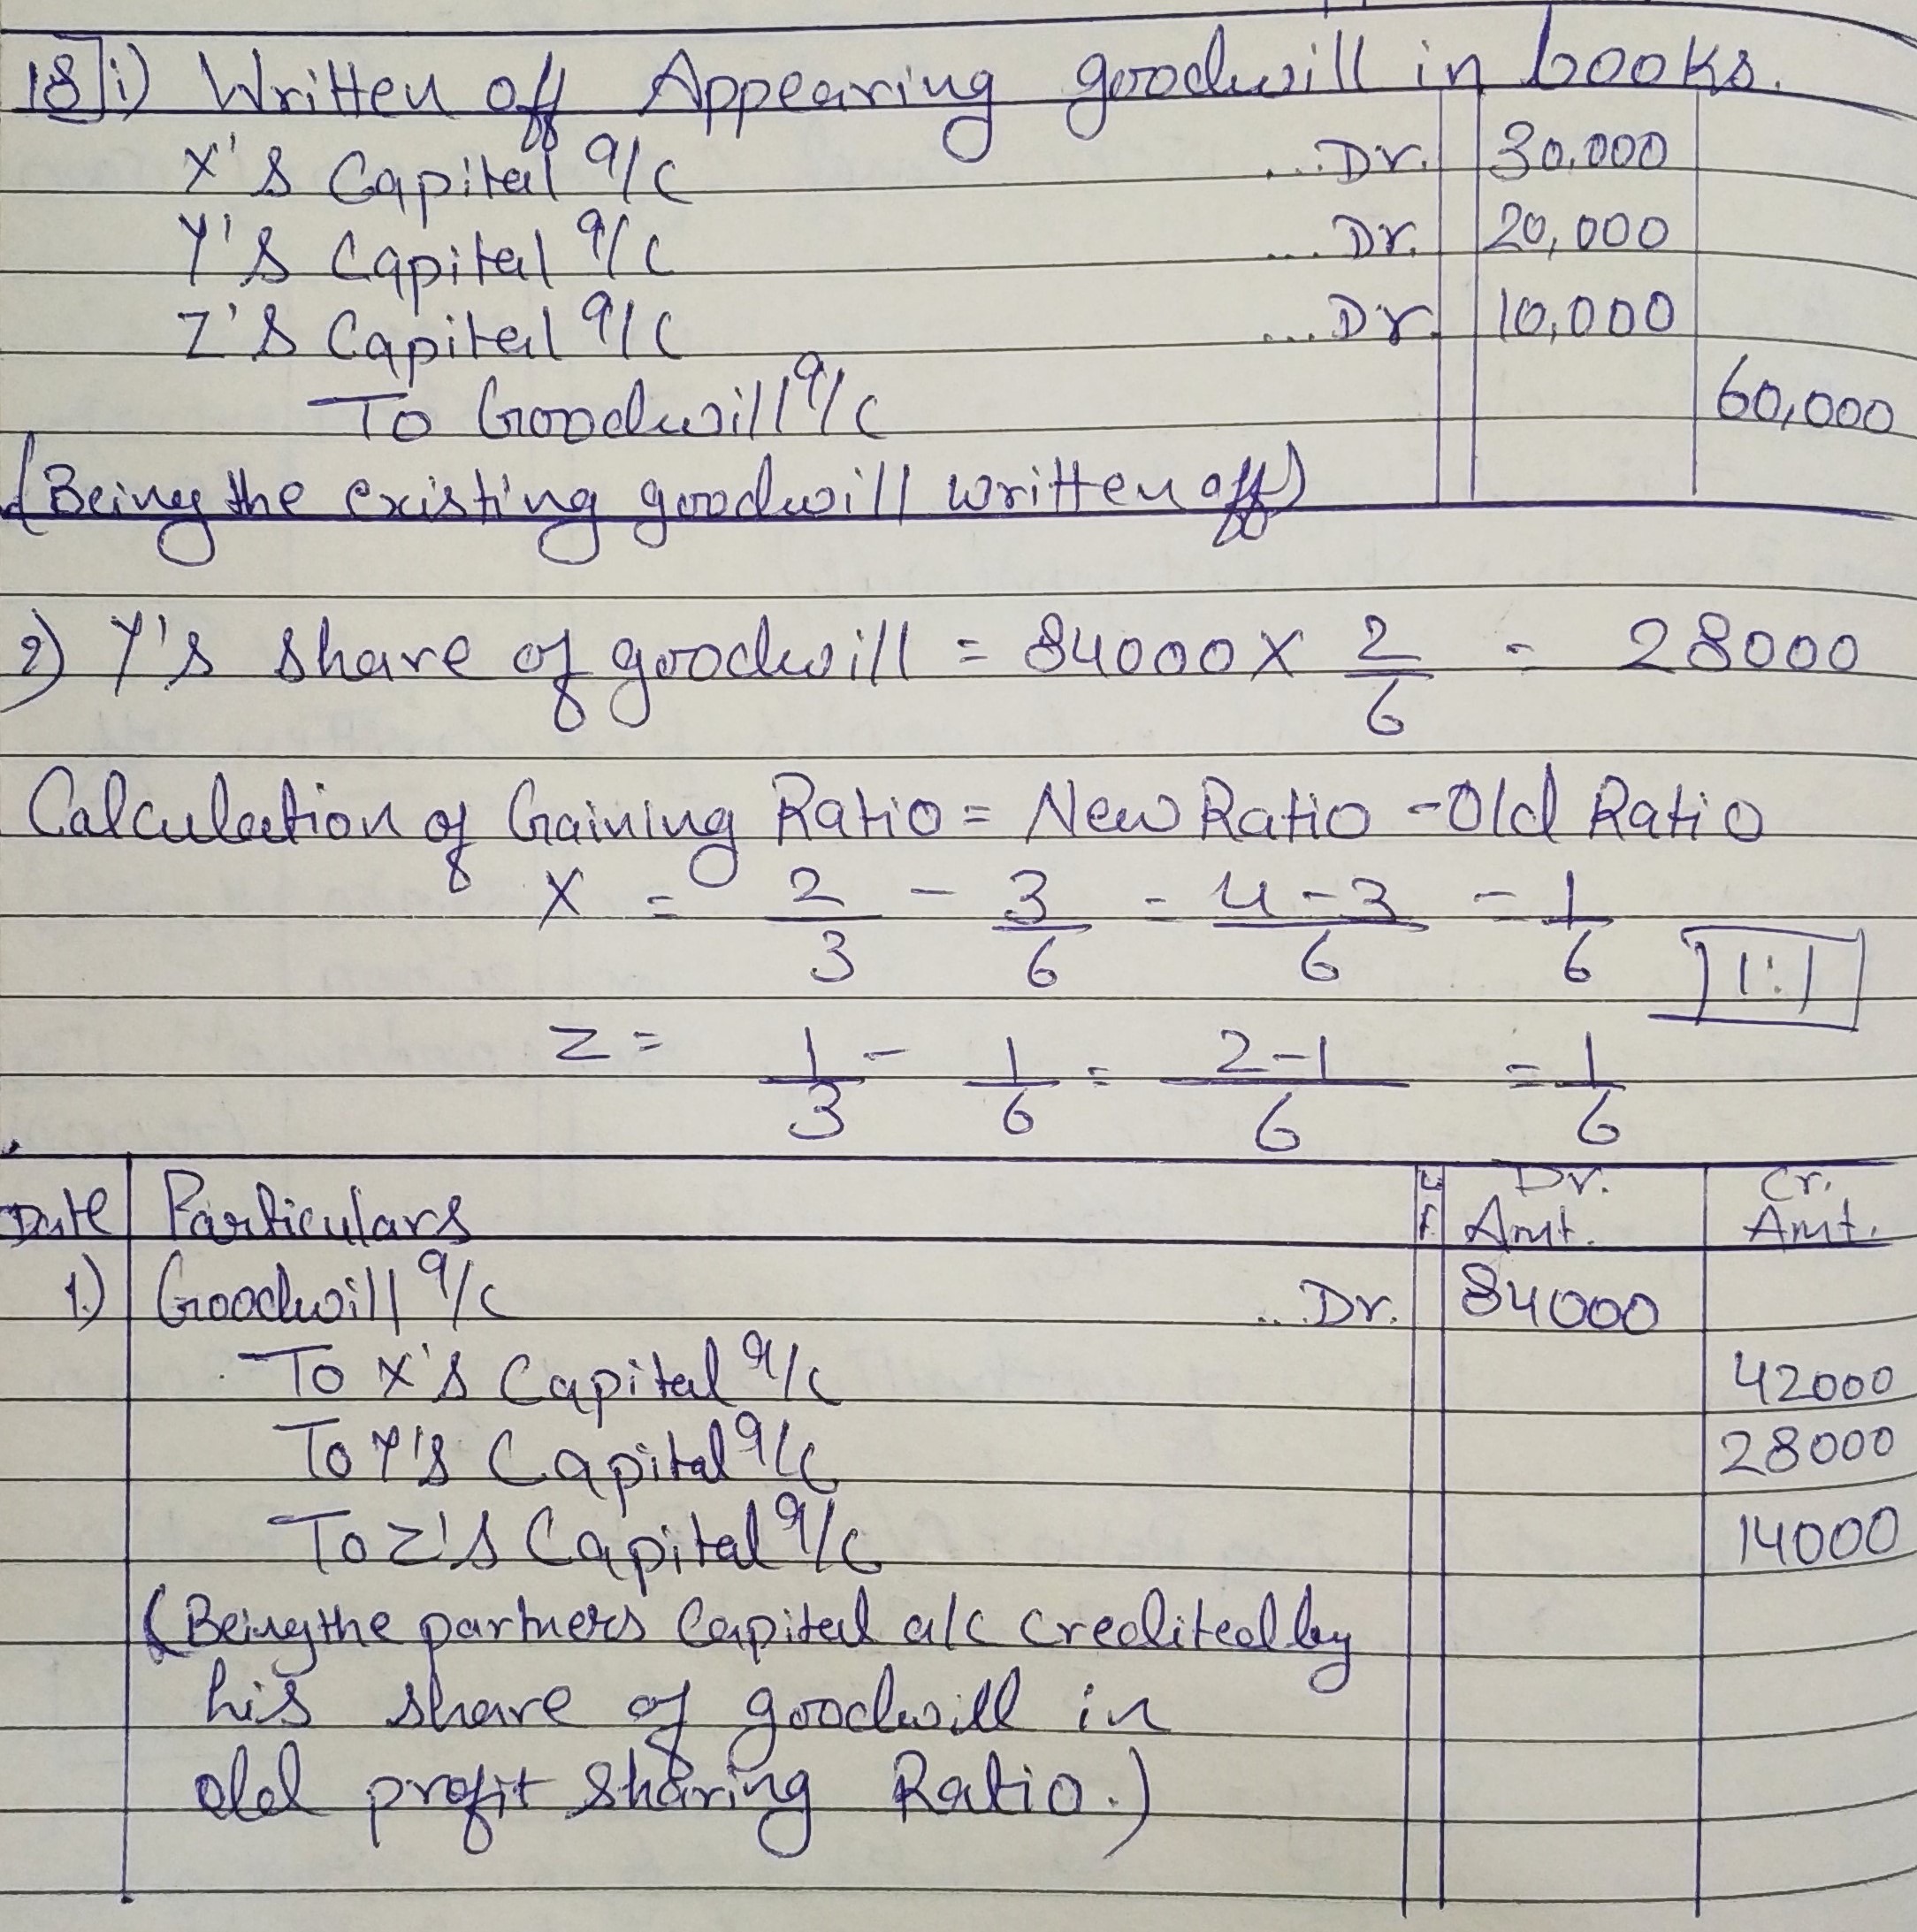 18] i) Written off Appearing goodwill in books.
X's Capital a/c ...Dr. 30,000
Y's Capital a/c ...Dr. 20,000
Z's Capital a/c ...Dr. 10,000
To Goodwill a/c 60,000
(Being the existing goodwill written off)
2) Y's share of goodwill = 84000 x 2/6 = 28000
Calculation of Gaining Ratio = New Ratio - Old Ratio
X = 2/3 - 3/6 = 4-3/6 = 1/6
1:1
Z = 1/3 - 1/6 = 2-1/6 = 1/6
Date Particulars L.F. Dr. Amt. Cr. Amt.
1.) Goodwill a/c ...Dr. 84000
To X's Capital a/c 42000
To Y's Capital a/c 28000
To Z's Capital a/c 14000
(Being the partners Capital a/c credited by
his share of goodwill in
old profit sharing Ratio.)